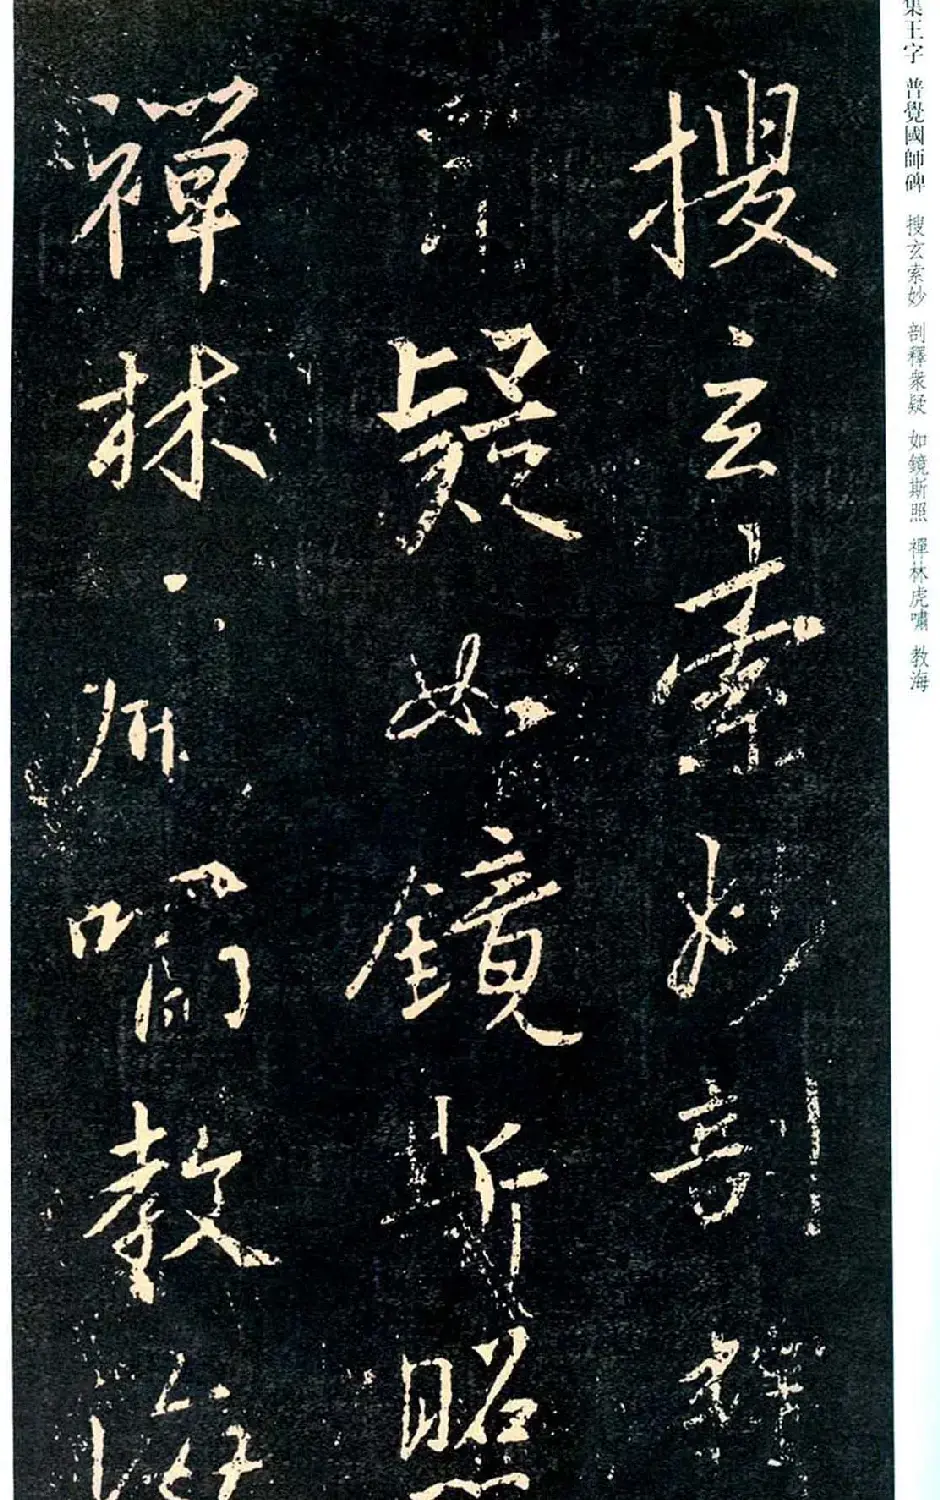 集王字 普覺國師碑 搜玄索妙 剖釋衆疑 如鏡斯照 禪林虎嘯 教海
搜玄索妙剖釋
疑如鏡斯照
禪林虎嘯教海